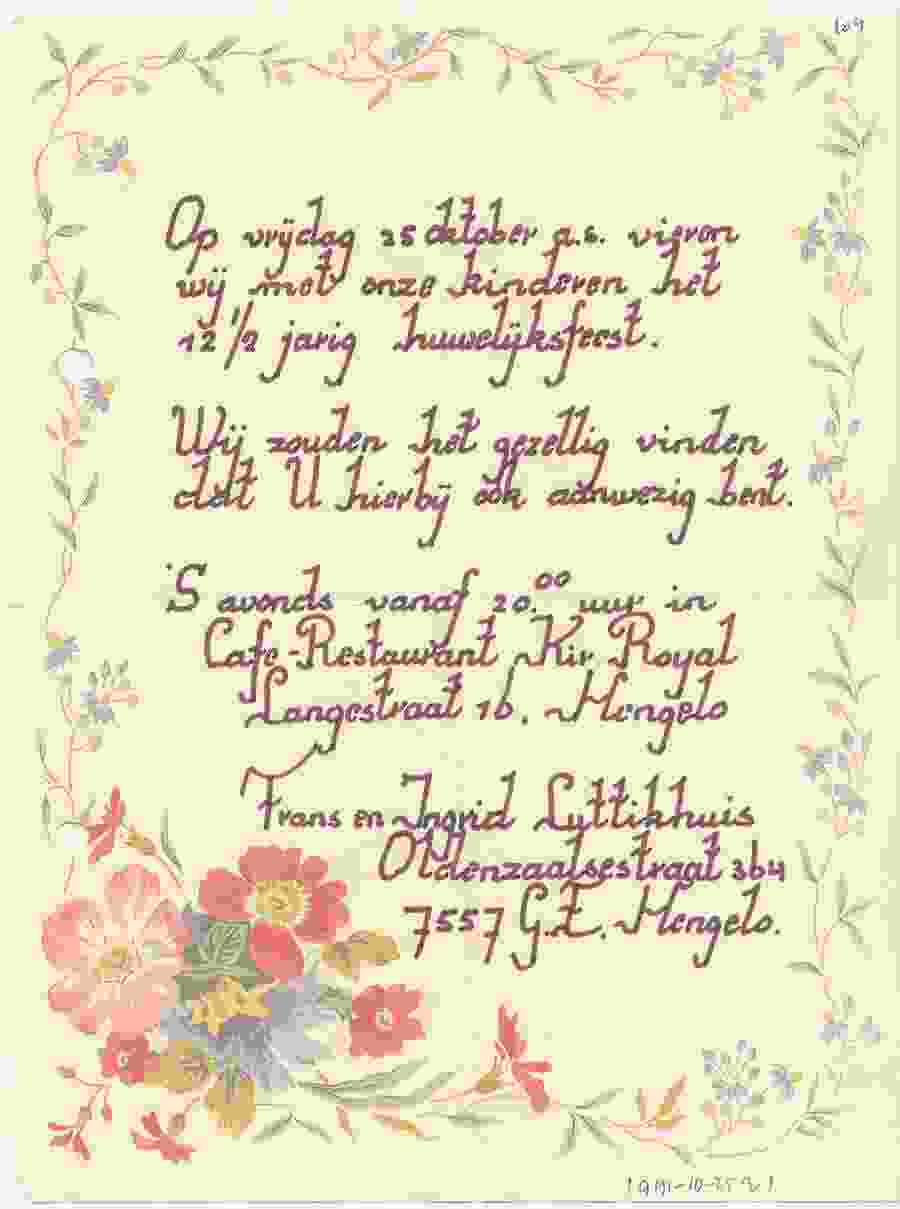 Op vrijdag 25 oktober a.s. vieren
wij met onze kinderen het
12 1/2 jarig huwelijksfeest.
Wij zouden het gezellig vinden
dat U hierbij ook aanwezig bent.
'S avonds vanaf 20.00 uur in
Cafe-Restaurant Kir Royal
Langestraat 16, Hengelo
Frans en Ingrid Luttikhuis
Oldenzaalsestraat 364
7557 G.Z. Hengelo.